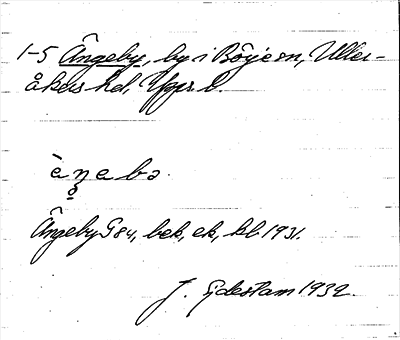 1-5 Ängeby, by i Börje sn, Uller-
åkers hd, Upps l.
Ängeby G 84, bek, ek, kl 1931.
J. Gidestam 1932.